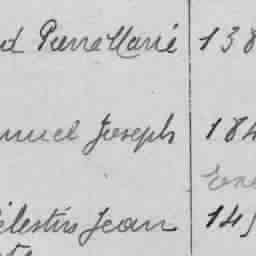 d Pierre Marie 138
nuel Joseph 184
élestin Jean 145